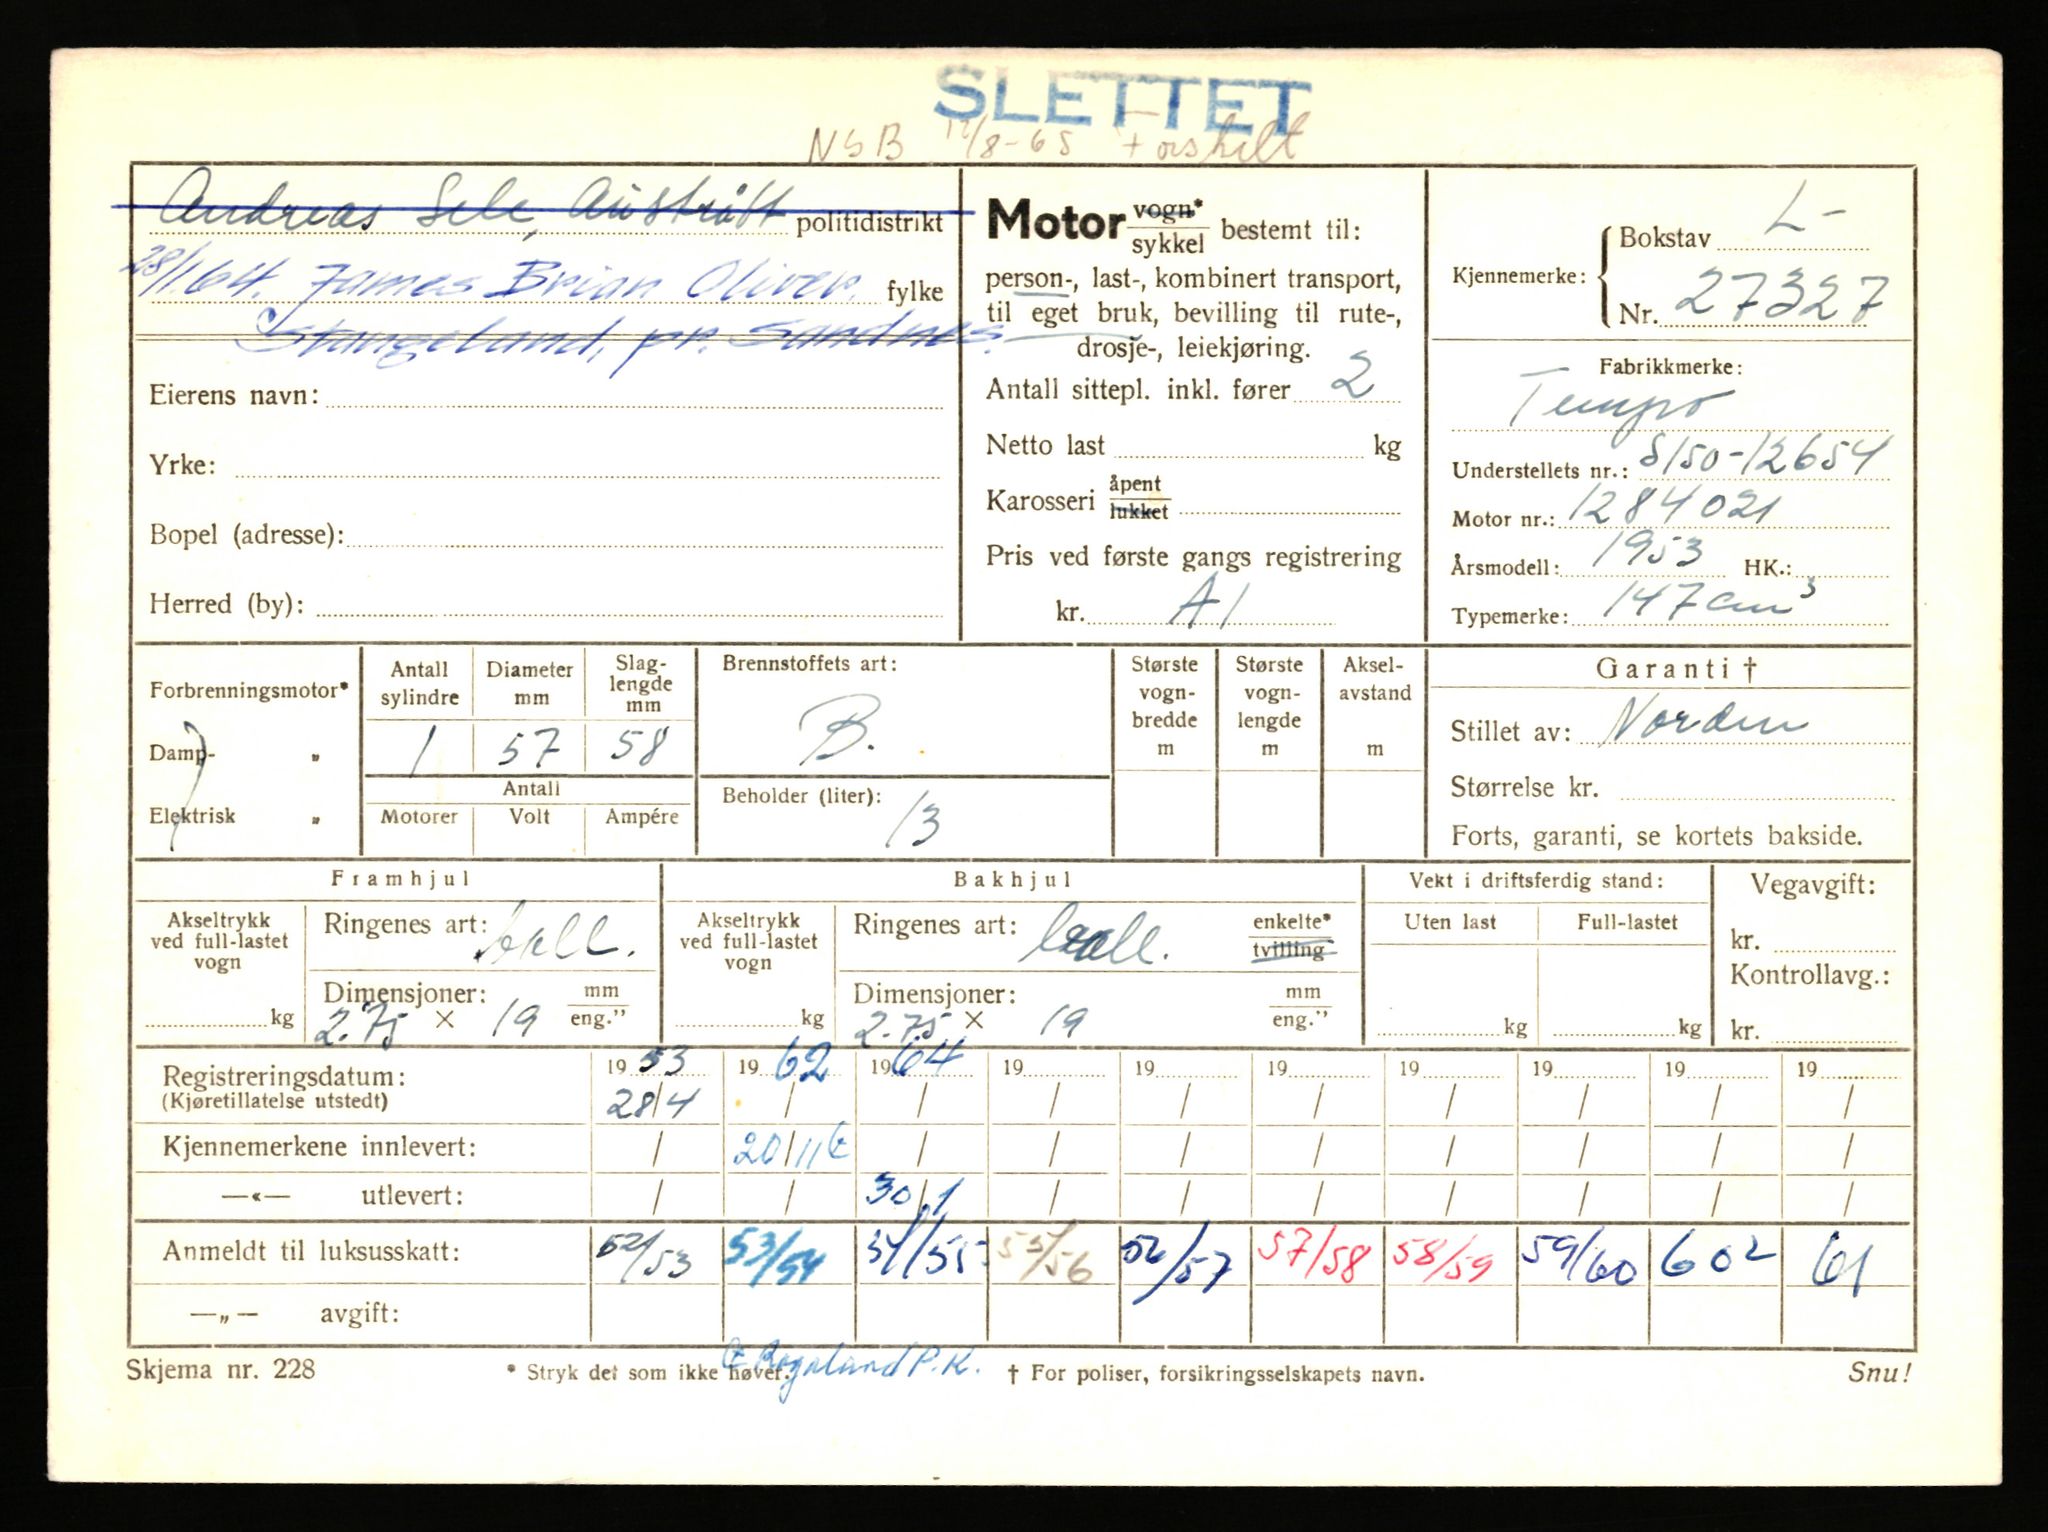 SLETTET
NSB 12/8-65 Forskilt
Andreas Sele, Austrått politidistrikt
28/1.64. James Brian Oliver. fylke
Stangeland, pr. Sandnes.
Eierens navn:
Yrke:
Bopel (adresse):
Herred (by):
Motor vogn* sykkel bestemt til:
person-, last-, kombinert transport,
til eget bruk, bevilling til rute-,
drosje-, leiekjøring.
Antall sittepl. inkl. fører 2
Netto last kg
Karosseri åpent lukket
Pris ved første gangs registrering
kr. A1
Kjennemerke: Bokstav L-
Nr. 27327
Fabrikkmerke:
Tempo
Understellets nr.: S150-12654
Motor nr.: 1284021
Årsmodell: 1953 HK.:
Typemerke: 147 cm³
Forbrenningsmotor*
Damp- „
Elektrisk „
Antall sylindre Diameter mm Slag-lengde mm
1 57 58
Antall
Motorer Volt Ampére
Brennstoffets art:
B.
Beholder (liter):
13
Største vogn-bredde m
Største vogn-lengde m
Aksel-avstand m
Garanti †
Stillet av: Norden
Størrelse kr.
Forts, garanti, se kortets bakside.
Framhjul
Akseltrykk ved full-lastet vogn
kg
Ringenes art: ball.
Dimensjoner: mm
2.75 × 19 eng.”
Bakhjul
Akseltrykk ved full-lastet vogn
kg
Ringenes art: ball. enkelte* tvilling
Dimensjoner: mm
2.75 × 19 eng.”
Vekt i driftsferdig stand:
Uten last Full-lastet
kg kg
Vegavgift:
kr.
Kontrollavg.:
kr.
Registreringsdatum: 1953 1962 1964 19 19 19 19 19 19 19
(Kjøretillatelse utstedt) 28/4 / / / / / / / / /
Kjennemerkene innlevert: / 20/11 / / / / / / / /
—«— utlevert: / / 30/1 / / / / / / /
Anmeldt til luksusskatt: 52/53 53/54 54/55 55/56 56/57 57/58 58/59 59/60 602 61
—„— avgift:
Skjema nr. 228 * Stryk det som ikke høver. Rogaland P.K. † For poliser, forsikringsselskapets navn. Snu!